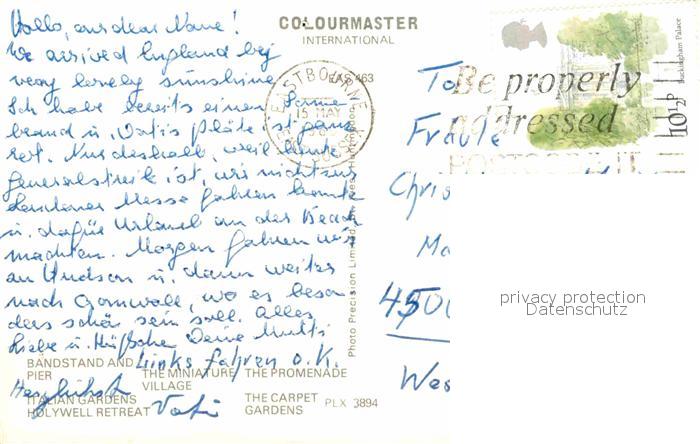 Hallo, our dear Nane!
We arrived England bej
very lovely sunshine
Ich habe bereits einen Sonnen-
brand u. Vatis Pläte ist ganz
rot. Nur deshalb, weil heute
Generalstreik ist, wir nicht zur
Londoner Messe fahren konnten
u. dafür Urlaub an der Beach
machten. Morgen fahren wir
zu Hudson u. dann weiter
nach Cornwall, wo es beson-
ders schön sein soll. Alles
Liebe u. Küßchen Deine Mutti
Links fahren o.K.
Herzlichst
Vati
COLOURMASTER
INTERNATIONAL
EAS 463
EASTBOURNE
15 MAY
Be properly
addressed
POSTCODE IT
Buckingham Palace
10½P
To
Fräule
Chris
Ma
4500
Wes
Photo Precision Limited
BANDSTAND AND
PIER
ITALIAN GARDENS
HOLYWELL RETREAT
THE MINIATURE
VILLAGE
THE PROMENADE
THE CARPET
GARDENS
PLX 3894
privacy protection
Datenschutz